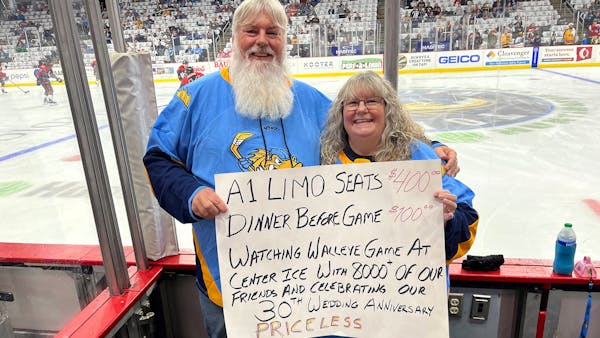 Cleavenger
GEICO
pepsi
A1 LIMO SEATS $400.00
DINNER BEFORE GAME $100.00
WATCHING WALLEYE GAME AT
CENTER ICE WITH 8000+ OF OUR
FRIENDS AND CELEBRATING OUR
30TH WEDDING ANNIVERSARY
PRICELESS